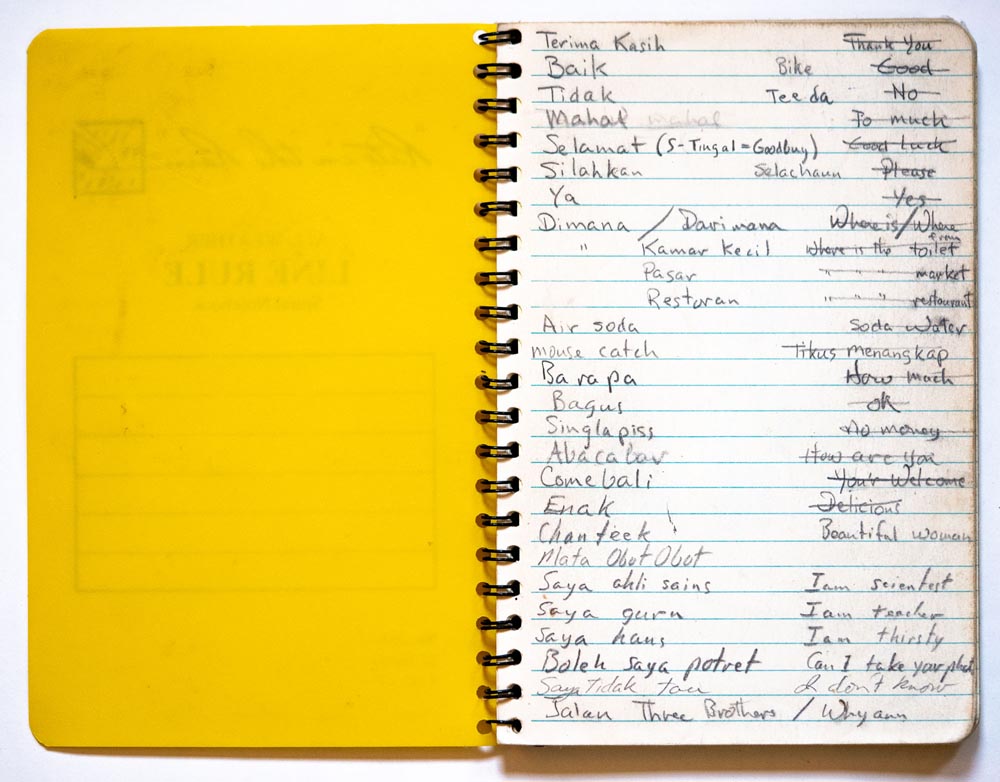 ALL-WEATHER
LINE RULE
Terima Kasih Thank You
Baik Bike Good
Tidak Teeda No
Mahal mahal To much
Selamat (S-Tingal = Goodbuy) Good Luck
Silahkan Selachaun Please
Ya Yes
Dimana / Darimana Where is / Where from
" Kamar Kecil Where is the toilet
Pasar " " " market
Restoran " " " restaurant
Air soda Soda Water
mouse catch Tikus menangkap
Barapa How much
Bagus ok
Singlapiss no money
Abacabar How are you
Comebali You'r Welcome
Enak Delicious
Chanteek Beautiful woman
Mata Obot Obot
Saya ahli sains I am scientest
Saya guru I am teacher
Saya haus I am thirsty
Boleh saya potret Can I take your phot
Saya tidak tau I don't know
Jalan Three Brothers / Whyann